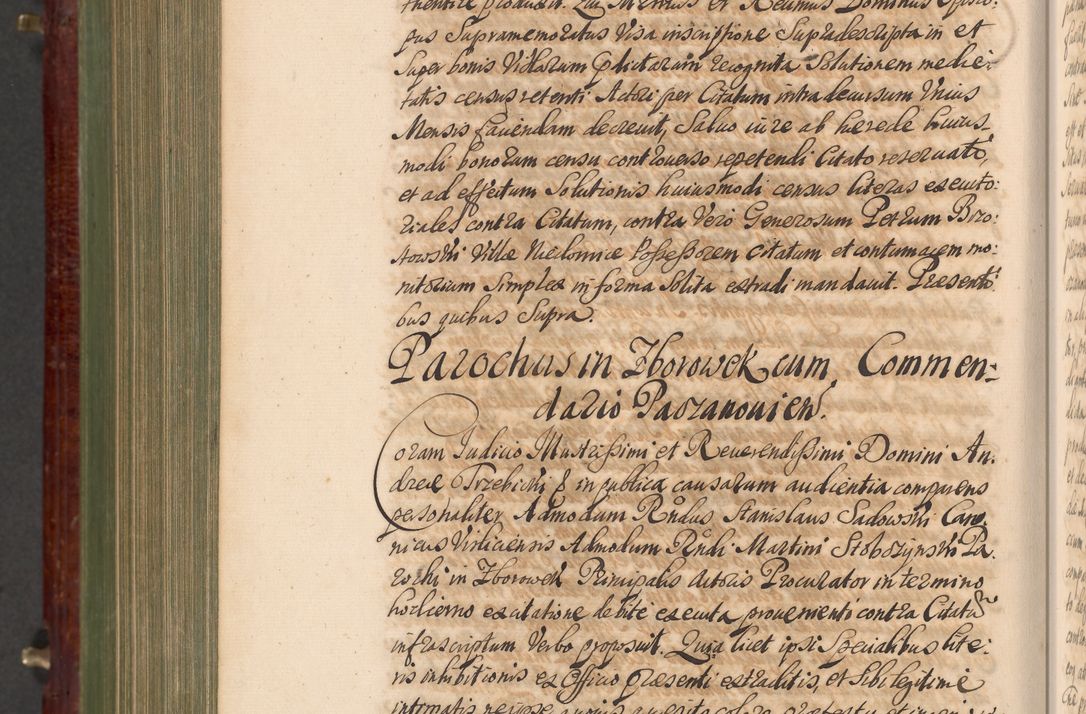 thentice produxit. Qui Illustris et Reverendissimus Dominus Episco:
pus Supramemoratus Visa inscriptione Supradescripta in et
Super bonis Villarum pdictarum recognita Solutionem medie:
tatis census retenti Actori per Citatum intra decursum Unius
Mensis faciendam decreuit, Saluo iure ab herede huius-
modi bonorum censu controuerso repetendi Citato reseruato,
et ad effectum Solutionis huiusmodi census literas executo:
riales contra Citatum, contra Vero Generosum Petrum Brzo:
stowski Villæ Possessorem citatum et contumacem mo:
nitorium Simplex in forma Solita extradi mandauit. Præsenti
bus quibus Supra.
Parochus in Zborowek cum Commen:
dario Paczanouien.
Coram Iudicio Illustrissimi et Reuerendissimi Domini An.
dreæ Trzebicki & in publica causarum audientia comparens
personaliter Admodum Rndus Stanislaus Sadowski Cano
nicus Visliciensis Admodum Rndi Martini Stobczynski Pa.
rochi in Zborowek Principalis Actoris Procurator in termino
hodierno ex citatione debite executa proueniente contra Citatum
infrascriptum Verbo proposuit. Quia licet ipsi Specialibus lite:
ris inhibitionis ex Officio præsenti extraditis, et Sibi legitime
intimatis